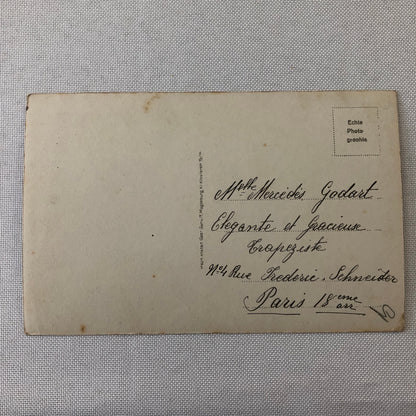 Echte
Photo-
graphie
Melle Mercédès Godart
Elegante et Gracieuse
Trapeziste
No 4 Rue Frederic. Schneider
Paris 18eme
arr